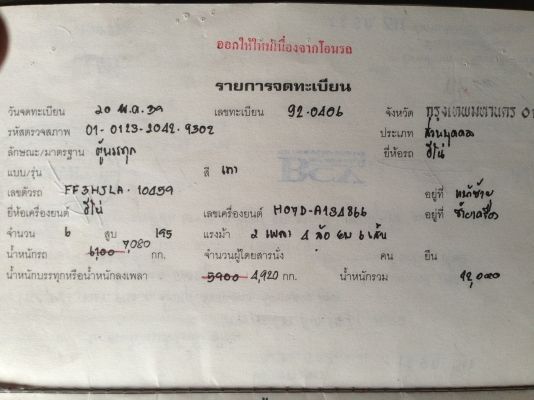 ออกให้ใหม่เนื่องจากโอนรถ
รายการจดทะเบียน
วันจดทะเบียน 20 พ.ค. 39 เลขทะเบียน 92-0406 จังหวัด กรุงเทพมหานคร 01
รหัสตรวจสภาพ 01-0123-2042-9302 ประเภท ส่วนบุคคล
ลักษณะ/มาตรฐาน ตู้บรรทุก ยี่ห้อรถ ฮีโน่
แบบ/รุ่น สี เทา
เลขตัวรถ FF3HJLA-10459 อยู่ที่
ยี่ห้อเครื่องยนต์ ฮีโน่ เลขเครื่องยนต์ H07D-A134866 อยู่ที่
จำนวน 6 สูบ 195 แรงม้า 2 เพลา 4 ล้อ ยาง 6 เส้น
น้ำหนักรถ 6,100 7,080 กก. จำนวนผู้โดยสารนั่ง คน ยืน
น้ำหนักบรรทุกหรือน้ำหนักลงเพลา 5900 4,920 กก. น้ำหนักรวม 12,000